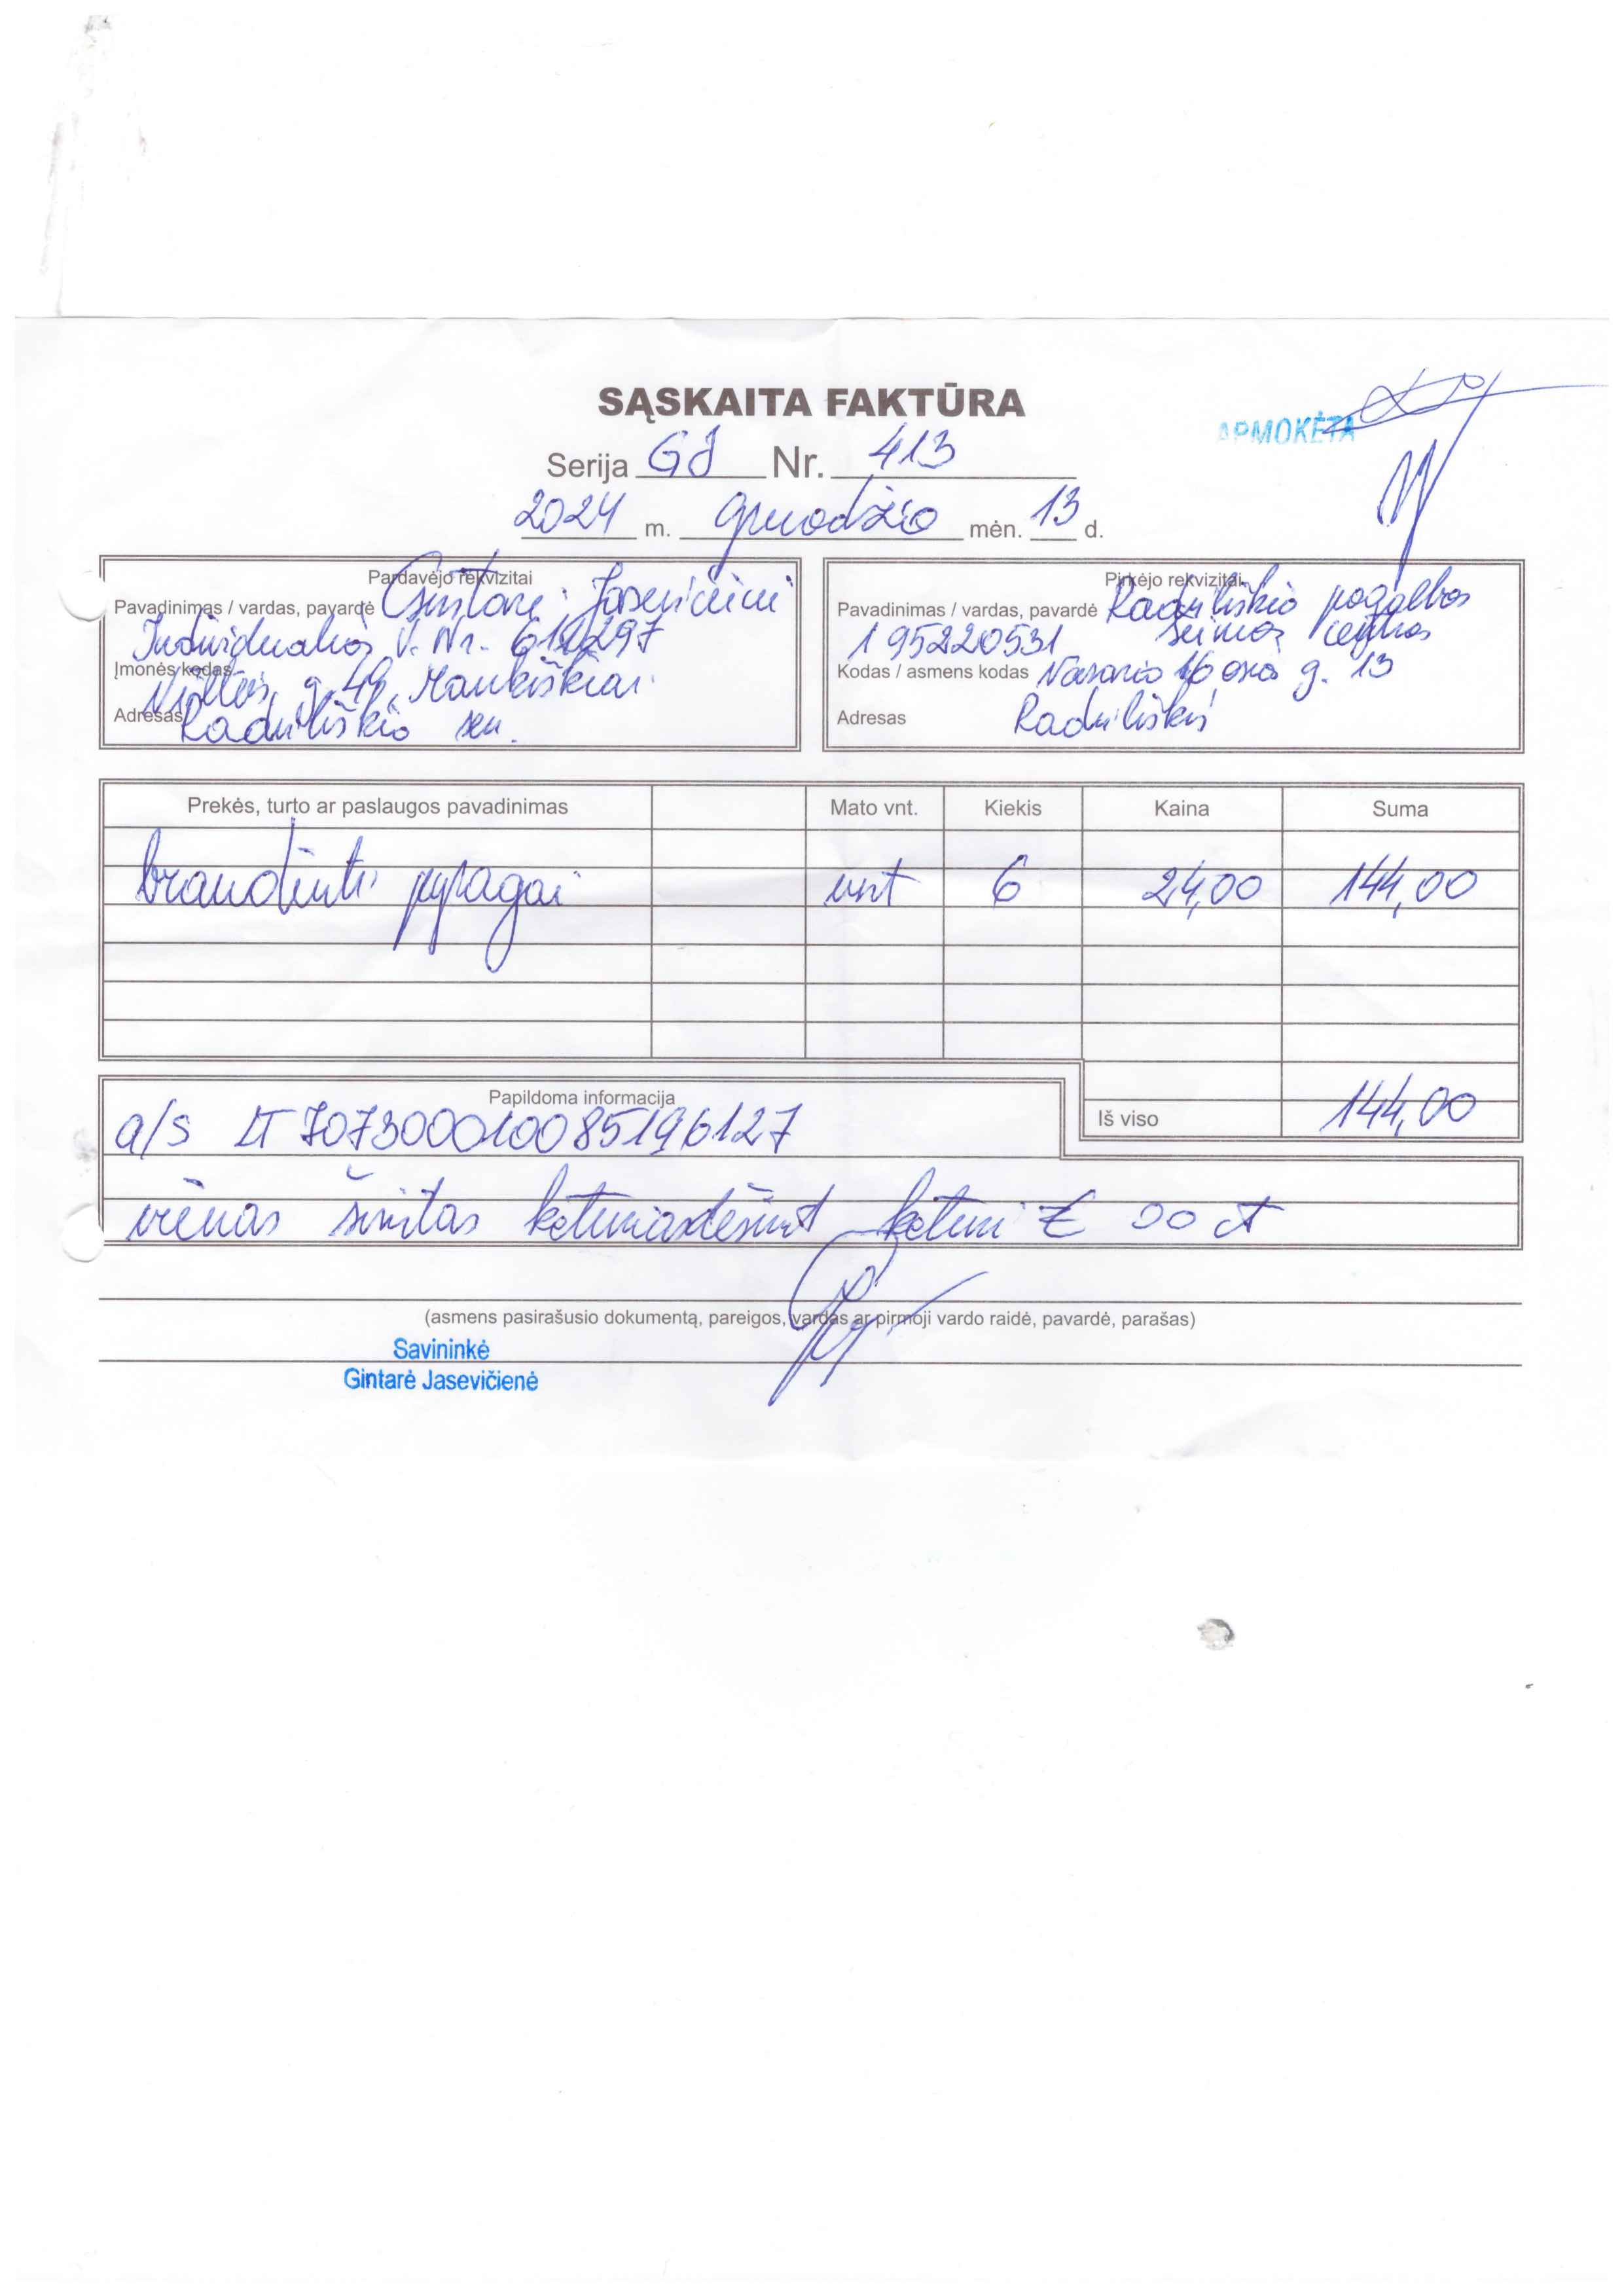 SĄSKAITA FAKTŪRA
APMOKĖTA
Serija GJ Nr. 413
2024 m. gruodžio mėn. 13 d.
Pardavėjo rekvizitai
Pavadinimas / vardas, pavardė Gintarė Jasevičienė
Individualios V. Nr.
Įmonės kodas
g. 49, Mankiškiai
Adresas Radviliškio sen.
Pirkėjo rekvizitai
Pavadinimas / vardas, pavardė Radviliškio pagalbos
195220531 šeimos centras
Kodas / asmens kodas Vasario 16 osios g. 13
Adresas Radviliškis
Prekės, turto ar paslaugos pavadinimas Mato vnt. Kiekis Kaina Suma
brandinti pyragai vnt 6 24,00 144,00
Papildoma informacija
a/s LT 707300010085196127
Iš viso 144,00
vienas šimtas keturiasdešimt keturi € 00 ct
(asmens pasirašusio dokumentą, pareigos, vardas ar pirmoji vardo raidė, pavardė, parašas)
Savininkė
Gintarė Jasevičienė